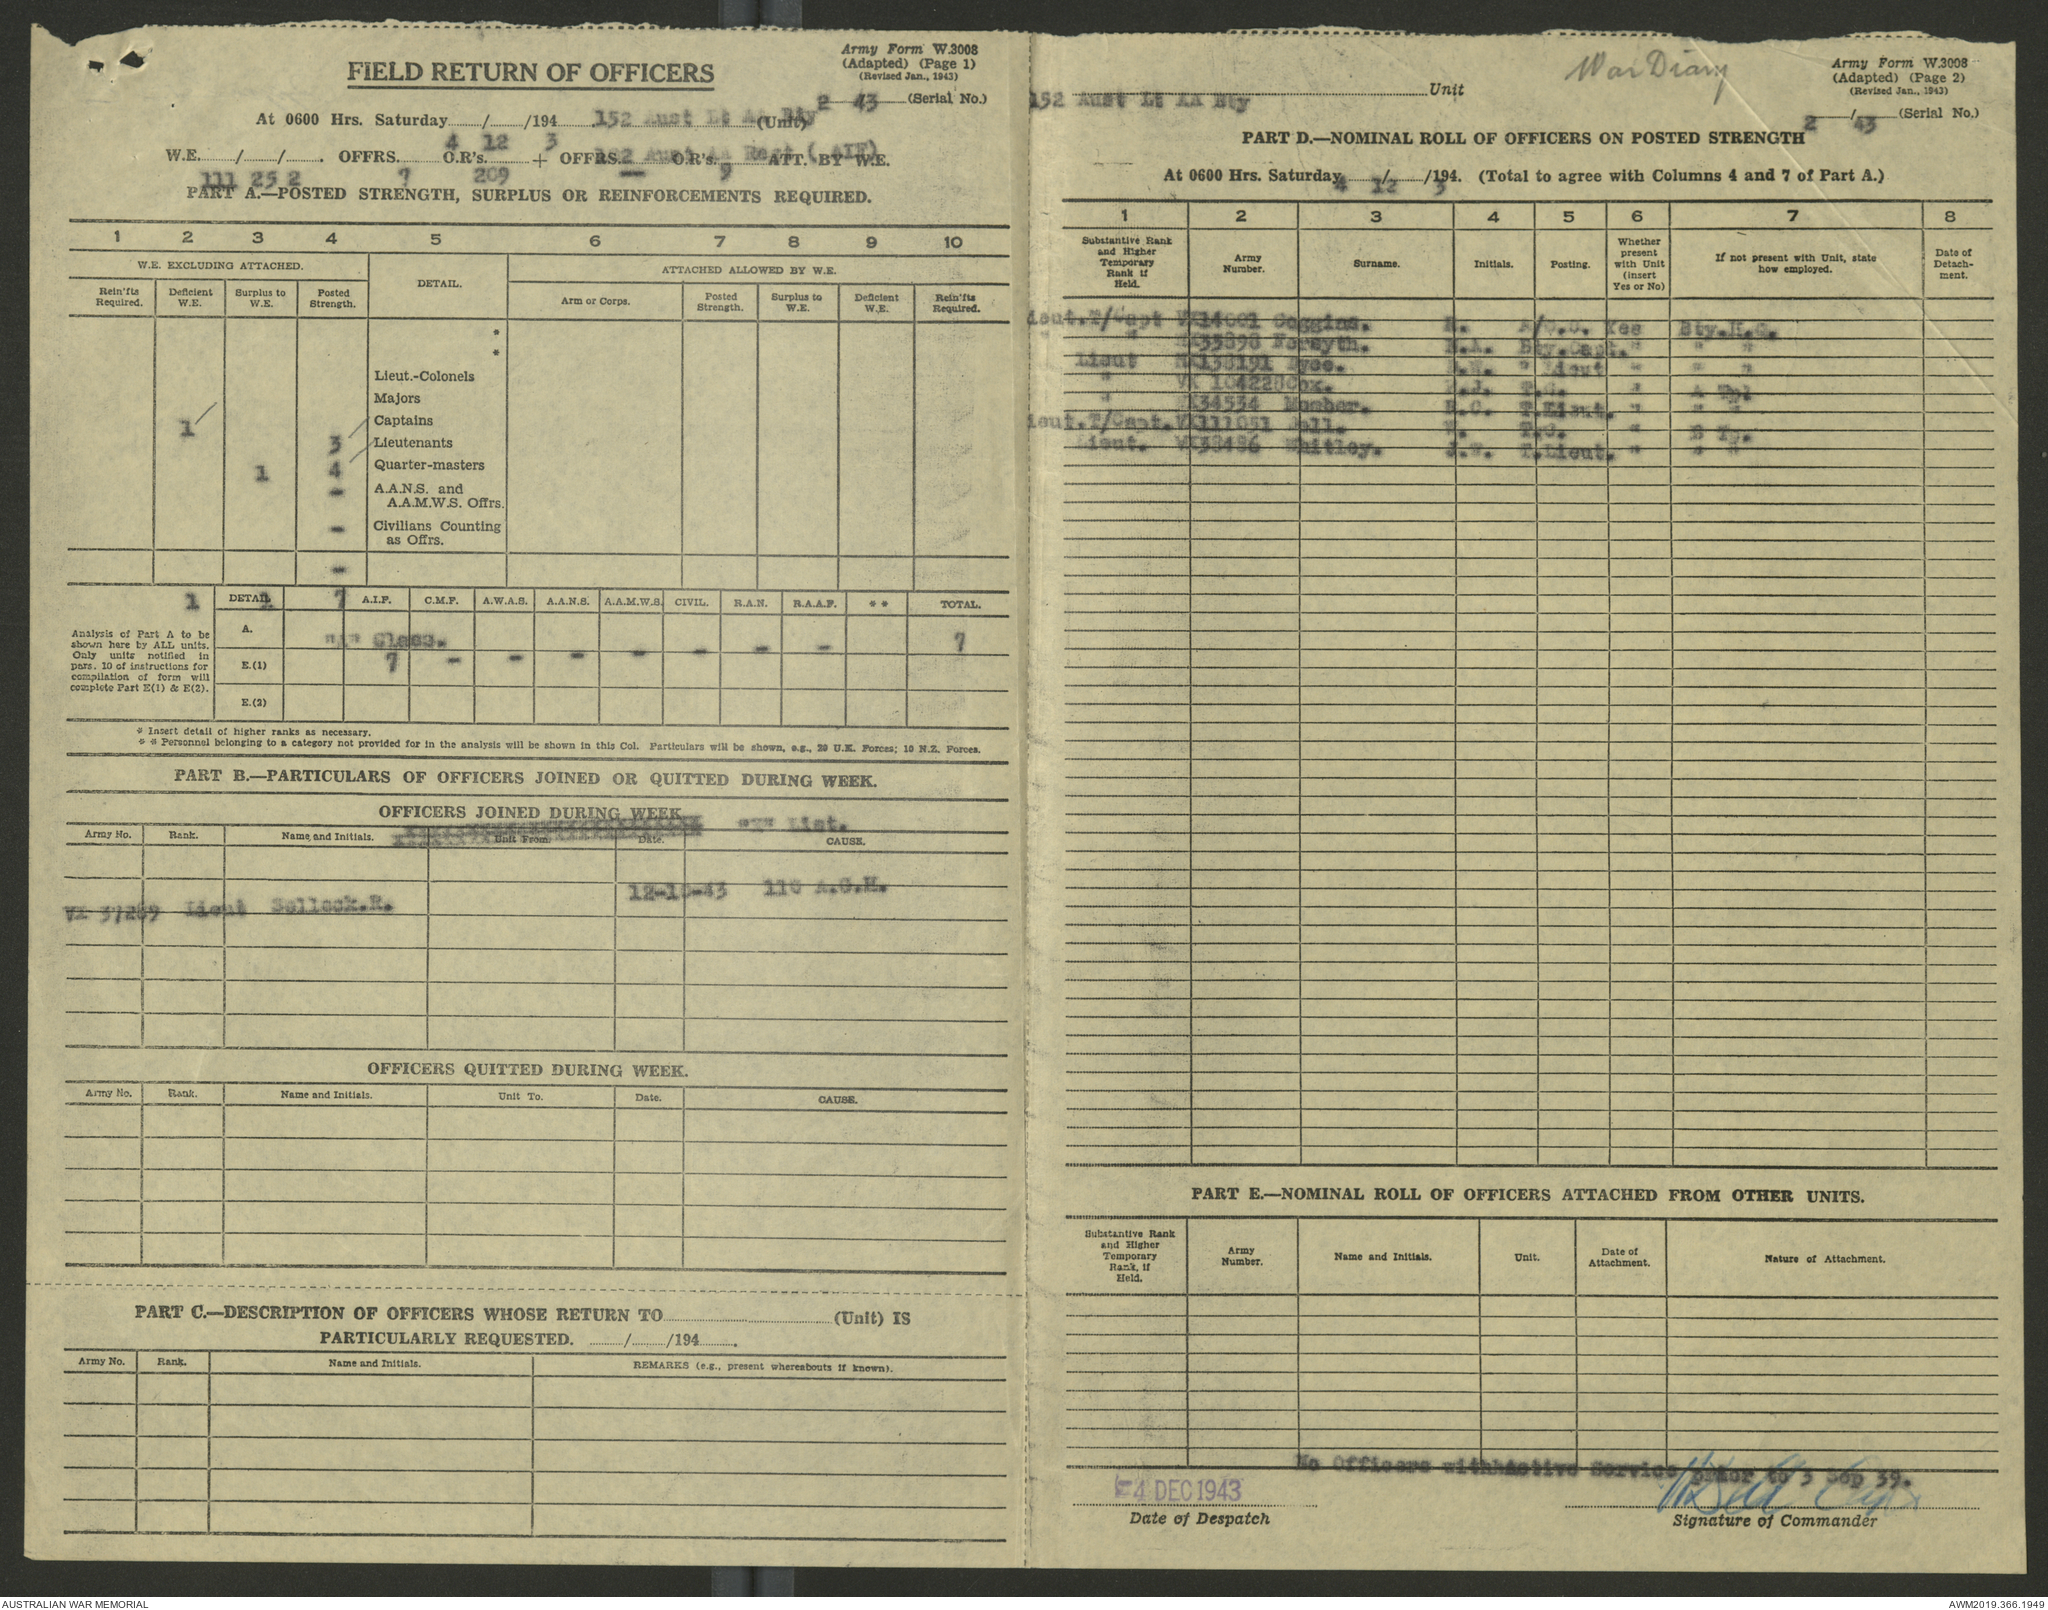 FIELD RETURN OF OFFICERS
Army Form W.3008
(Adapted) (Page 1)
(Revised Jan., 1943)
2 43 (Serial No.)
At 0600 Hrs. Saturday......../......../194........ (Unit)
152 Aust Lt AA Bty
4 12 3 152 Aust AA Regt (AIF)
W.E......../......../......... OFFRS......... O.R's......... + OFFRS......... O.R's......... ATT. BY W.E.
111 25 2 7 209 — 9
PART A.—POSTED STRENGTH, SURPLUS OR REINFORCEMENTS REQUIRED.
1 2 3 4 5 6 7 8 9 10
W.E. EXCLUDING ATTACHED.
DETAIL.
ATTACHED ALLOWED BY W.E.
Rein'fts Required.
Deficient W.E.
Surplus to W.E.
Posted Strength.
Arm or Corps.
Posted Strength.
Surplus to W.E.
Deficient W.E.
Rein'fts Required.
*
*
Lieut.-Colonels
Majors
Captains
1 3 Lieutenants
1 4 Quarter-masters
- A.A.N.S. and
A.A.M.W.S. Offrs.
- Civilians Counting
as Offrs.
-
1 1 7
DETAIL A.I.F. C.M.F. A.W.A.S. A.A.N.S. A.A.M.W.S. CIVIL. R.A.N. R.A.A.F. * * TOTAL.
Analysis of Part A to be
shown here by ALL units.
Only units notified in
para. 10 of instructions for
compilation of form will
complete Part E(1) & E(2).
A.
"A" Class.
7 - - - - - - - 7
E.(1)
E.(2)
* Insert detail of higher ranks as necessary.
* * Personnel belonging to a category not provided for in the analysis will be shown in this Col. Particulars will be shown, e.g., 20 U.K. Forces; 10 N.Z. Forces.
PART B.—PARTICULARS OF OFFICERS JOINED OR QUITTED DURING WEEK.
OFFICERS JOINED DURING WEEK
"X" List.
Army No. Rank. Name and Initials. Unit From. Date. CAUSE.
VX 37269 Lieut Selleck.R. 12-10-43 110 A.G.H.
OFFICERS QUITTED DURING WEEK.
Army No. Rank. Name and Initials. Unit To. Date. CAUSE.
PART C.—DESCRIPTION OF OFFICERS WHOSE RETURN TO........................(Unit) IS
PARTICULARLY REQUESTED. ......../......../194.........
Army No. Rank. Name and Initials. REMARKS (e.g., present whereabouts if known).
War Diary
Army Form W.3008
(Adapted) (Page 2)
(Revised Jan., 1943)
152 Aust Lt AA Bty
Unit
......../........ (Serial No.)
2 43
PART D.—NOMINAL ROLL OF OFFICERS ON POSTED STRENGTH
At 0600 Hrs. Saturday......../......../194. (Total to agree with Columns 4 and 7 of Part A.)
4 12 3
1 2 3 4 5 6 7 8
Substantive Rank and Higher Temporary Rank if Held.
Army Number.
Surname.
Initials.
Posting.
Whether present with Unit (insert Yes or No)
If not present with Unit, state how employed.
Date of Detachment.
ieut.T/Capt VX14001 Coggins. A/O.C. Yes Bty.H.Q.
" " Forsyth. Bty.Capt. " " "
Lieut " Lieut " " "
" VX 104228 Cox. " A Tp
" T.Lieut. " " "
ieut.T/Capt. VX111051 Bell. " B Tp.
Lieut. VX38486 Whitley. J.W. T.Lieut. " " "
PART E.—NOMINAL ROLL OF OFFICERS ATTACHED FROM OTHER UNITS.
Substantive Rank and Higher Temporary Rank, if Held.
Army Number.
Name and Initials.
Unit.
Date of Attachment.
Nature of Attachment.
No Officers with Active Service prior to 3 Sep 39.
4 DEC 1943
Date of Despatch
Signature of Commander
AUSTRALIAN WAR MEMORIAL
AWM2019.366.1949